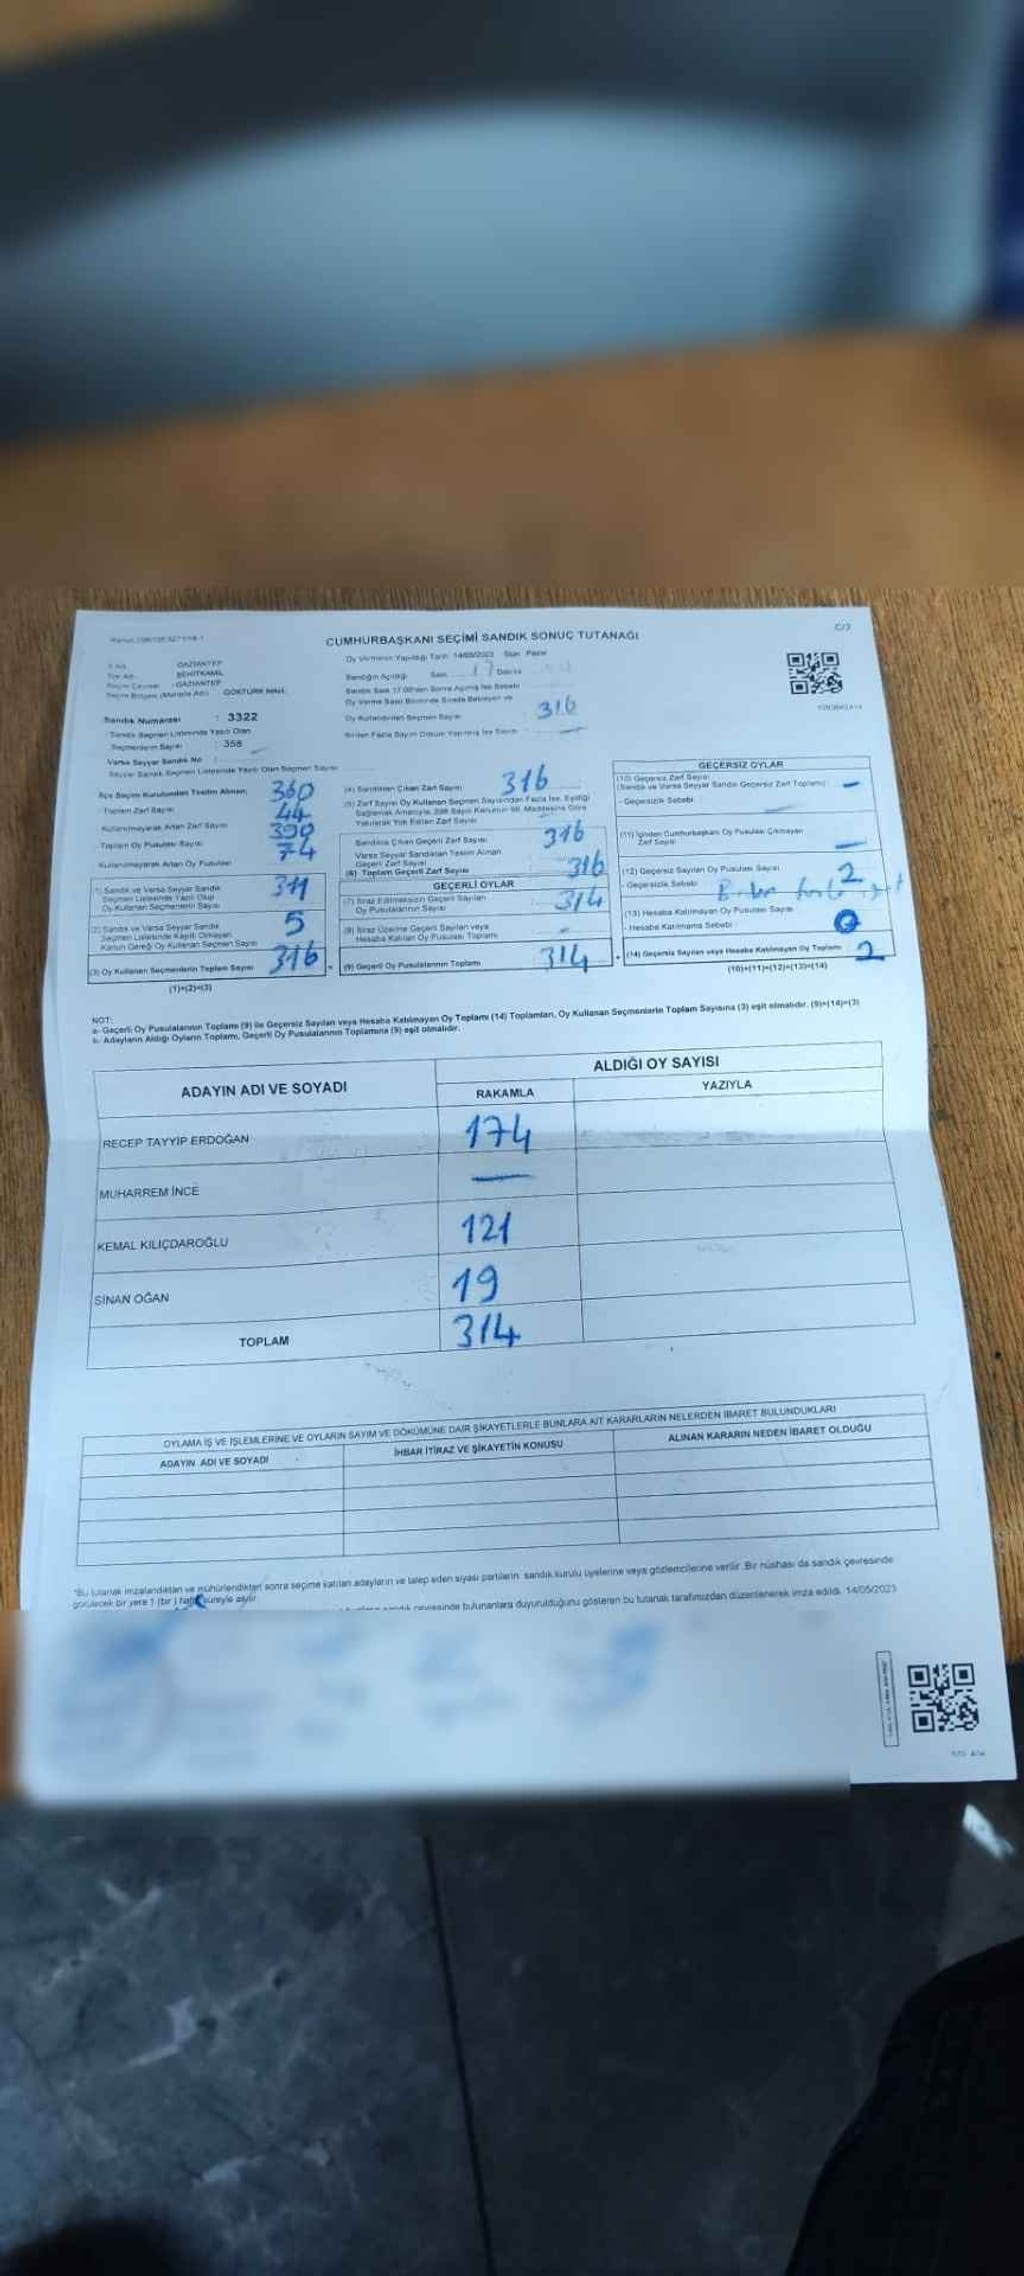 C/2
CUMHURBAŞKANI SEÇİMİ SANDIK SONUÇ TUTANAĞI
GAZİANTEP
ŞEHİTKAMİL
GAZİANTEP
GÖKTÜRK MAH.
Oy Vermenin Yapıldığı Tarih: 14/05/2023 Gün: Pazar
Sandığın Açıldığı Saat: 17 Dakika
Sandık Saat 17.00'den Sonra Açılmış İse Sebebi
Sandık Numarası : 3322
Sandık Seçmen Listesinde Yazılı Olan
Seçmenlerin Sayısı : 358
Varsa Seyyar Sandık No
Seyyar Sandık Seçmen Listesinde Yazılı Olan Seçmen Sayısı
Oy Kullandırılan Seçmen Sayısı : 316
Birden Fazla Sayım Döküm Yapılmış İse Sayısı
İlçe Seçim Kurulundan Teslim Alınan
Toplam Zarf Sayısı 360
Kullanılmayarak Artan Zarf Sayısı 44
Toplam Oy Pusulası Sayısı 390
Kullanılmayarak Artan Oy Pusulası 74
(1) Sandık ve Varsa Seyyar Sandık
Seçmen Listesinde Yazılı Olup
Oy Kullanan Seçmenlerin Sayısı 311
(2) Sandık ve Varsa Seyyar Sandık
Seçmen Listesinde Kayıtlı Olmayan
Kanun Gereği Oy Kullanan Seçmen Sayısı 5
(3) Oy Kullanan Seçmenlerin Toplam Sayısı 316
(1)+(2)=(3)
(4) Sandıktan Çıkan Zarf Sayısı 316
(5) Zarf Sayısı Oy Kullanan Seçmen Sayısından Fazla İse, Eşitliği
Sağlamak Amacıyla, 298 Sayılı Kanunun 98. Maddesine Göre
Yakılarak Yok Edilen Zarf Sayısı
Sandıkta Çıkan Geçerli Zarf Sayısı 316
Varsa Seyyar Sandıktan Teslim Alınan
Geçerli Zarf Sayısı
(6) Toplam Geçerli Zarf Sayısı 316
GEÇERLİ OYLAR
(7) İtiraz Edilmeksizin Geçerli Sayılan
Oy Pusulalarının Sayısı 314
(8) İtiraz Üzerine Geçerli Sayılan veya
Hesaba Katılan Oy Pusulası Toplamı -
(9) Geçerli Oy Pusulalarının Toplamı : 314
GEÇERSİZ OYLAR
(10) Geçersiz Zarf Sayısı
(Sandık ve Varsa Seyyar Sandık Geçersiz Zarf Toplamı) : -
- Geçersizlik Sebebi
(11) İçinden Cumhurbaşkanı Oy Pusulası Çıkmayan
Zarf Sayısı -
(12) Geçersiz Sayılan Oy Pusulası Sayısı 2
- Geçersizlik Sebebi
(13) Hesaba Katılmayan Oy Pusulası Sayısı
- Hesaba Katılmama Sebebi
(14) Geçersiz Sayılan veya Hesaba Katılmayan Oy Toplamı 2
(10)+(11)+(12)+(13)=(14)
NOT:
a- Geçerli Oy Pusulalarının Toplamı (9) ile Geçersiz Sayılan veya Hesaba Katılmayan Oy Toplamı (14) Toplamları, Oy Kullanan Seçmenlerin Toplam Sayısına (3) eşit olmalıdır. (9)+(14)=(3)
b- Adayların Aldığı Oyların Toplamı, Geçerli Oy Pusulalarının Toplamına (9) eşit olmalıdır.
ADAYIN ADI VE SOYADI
ALDIĞI OY SAYISI
RAKAMLA
YAZIYLA
RECEP TAYYİP ERDOĞAN 174
MUHARREM İNCE —
KEMAL KILIÇDAROĞLU 121
SİNAN OĞAN 19
TOPLAM 314
OYLAMA İŞ VE İŞLEMLERİNE VE OYLARIN SAYIM VE DÖKÜMÜNE DAİR ŞİKAYETLERLE BUNLARA AİT KARARLARIN NELERDEN İBARET BULUNDUKLARI
ADAYIN ADI VE SOYADI
İHBAR İTİRAZ VE ŞİKAYETİN KONUSU
ALINAN KARARIN NEDEN İBARET OLDUĞU
*Bu tutanak imzalandıktan ve mühürlendikten sonra seçime katılan adayların ve talep eden siyasi partilerin sandık kurulu üyelerine veya gözlemcilerine verilir. Bir nüshası da sandık çevresinde
görülecek bir yere 1 (bir) hafta süreyle asılır.
sandık çevresinde bulunanlara duyurulduğunu gösteren bu tutanak tarafımızdan düzenlenerek imza edildi. 14/05/2023